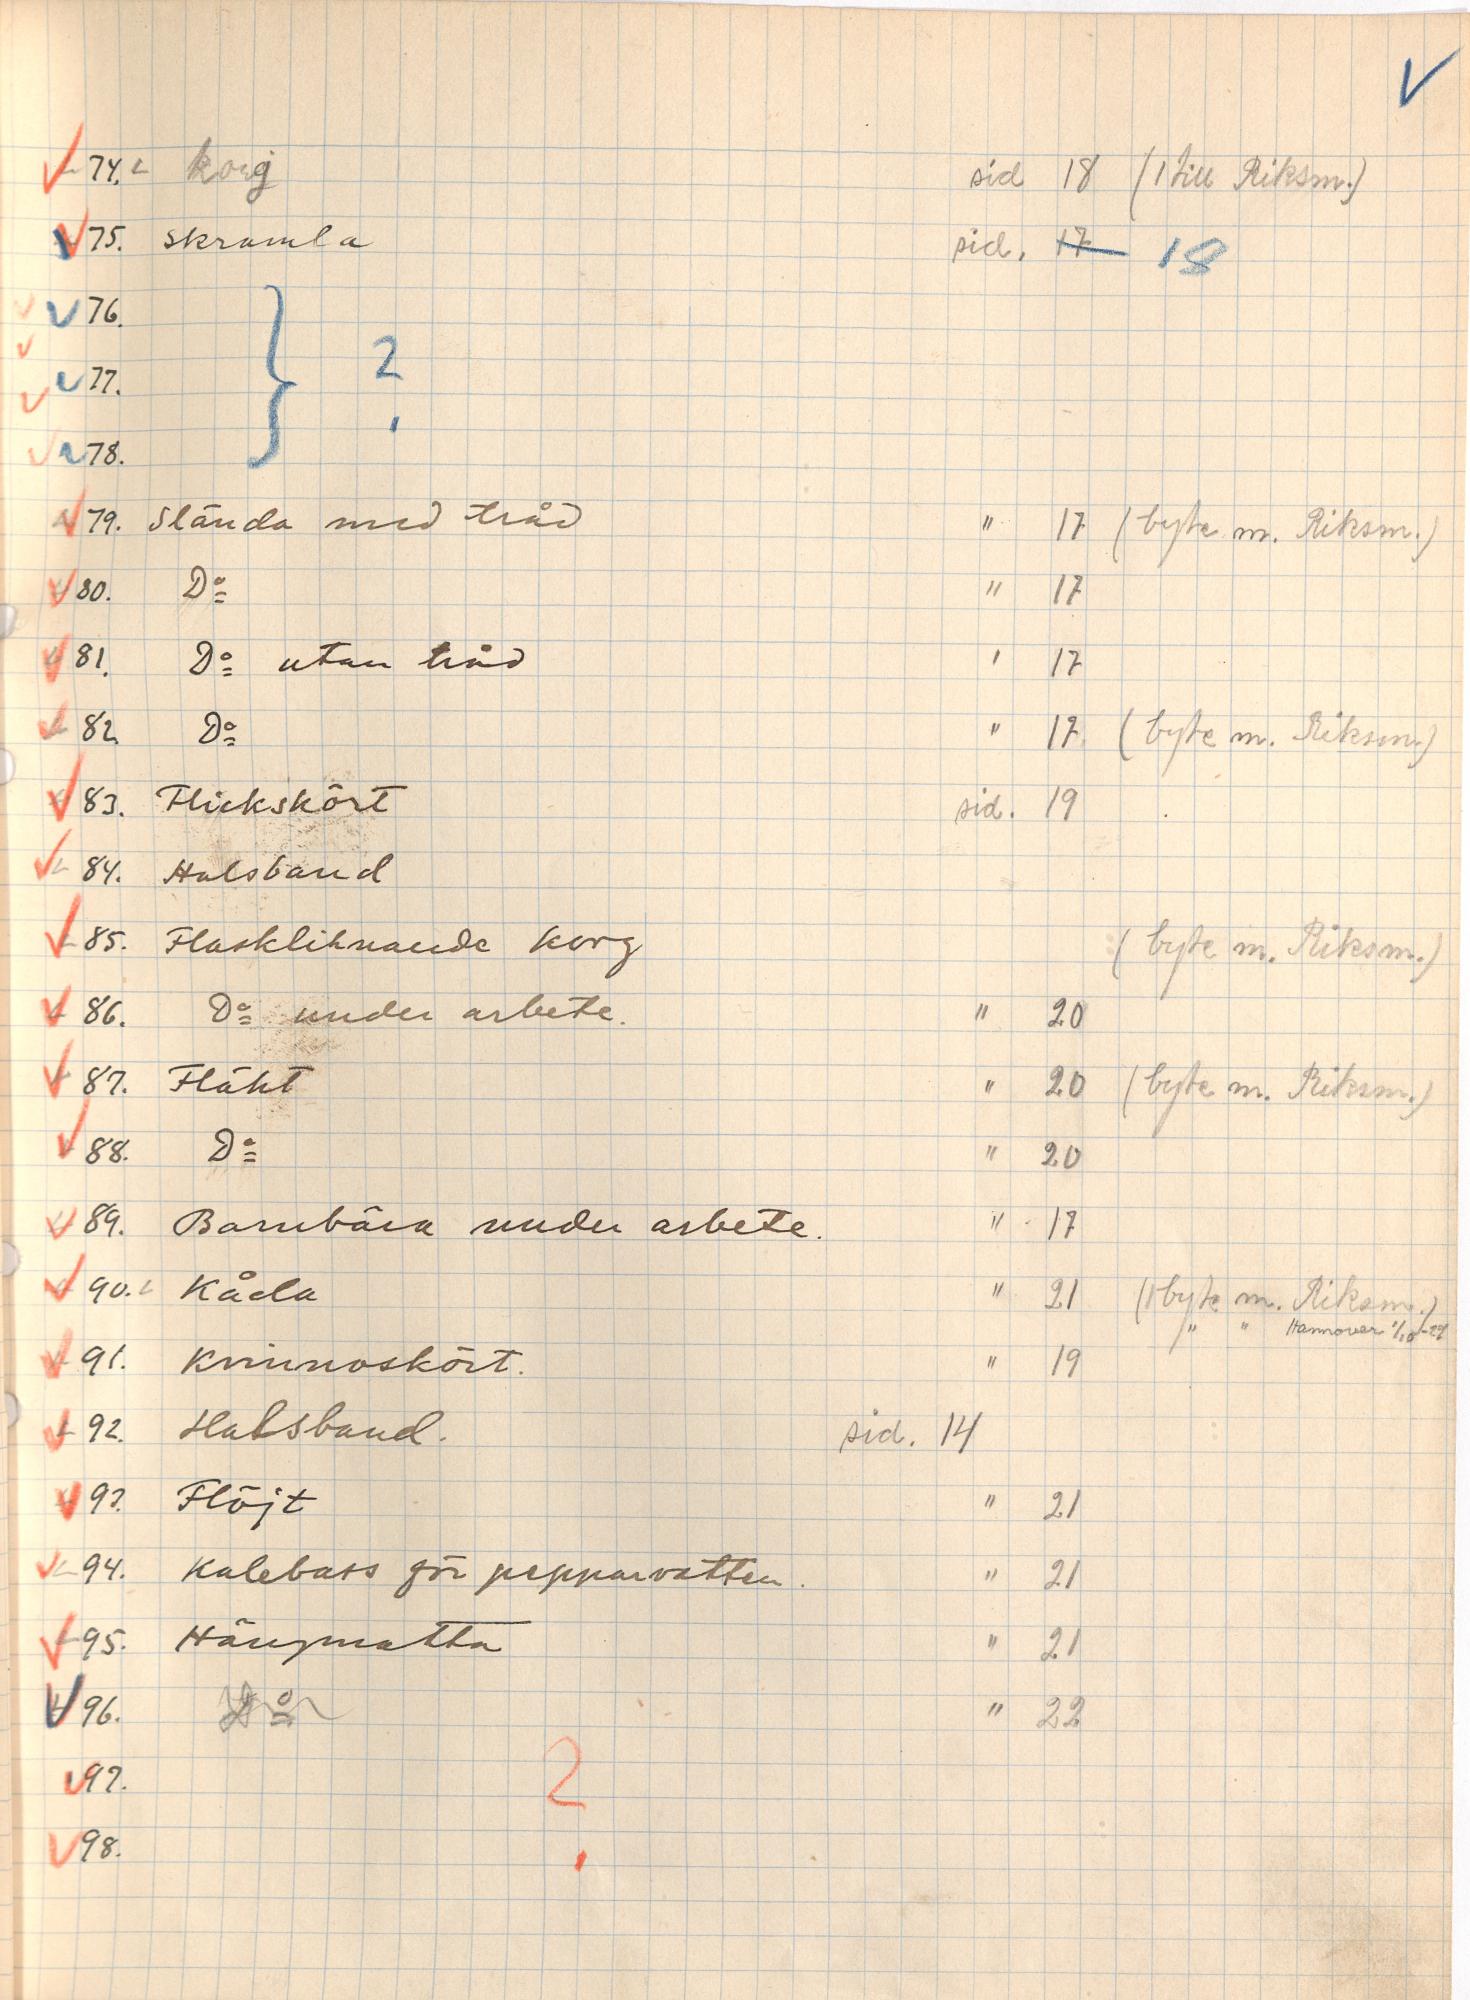 74. korg sid 18 (1 till Riksm.)
75. Skramla sid. 17 18
76.
77. ?
78.
79. Slända med tråd " 17 (byte m. Riksm.)
80. Do " 17
81. Do utan tråd " 17
82. Do " 17 (byte m. Riksm.)
83. Flickskört sid. 19
84. Halsband
85. Flaskliknande korg (byte m. Riksm.)
86. Do under arbete. " 20
87. Fläkt " 20 (byte m. Riksm.)
88. Do " 20
89. Barnbära under arbete. " 17
90. Kåda " 21 (1 byte m. Riksm.)
" " Hannover
91. Kvinnoskört. " 19
92. Halsband. sid. 14
93. Flöjt " 21
94. Kalebass för pepparvatten. " 21
95. Hängmatta " 21
96. Do " 22
97. ?
98.